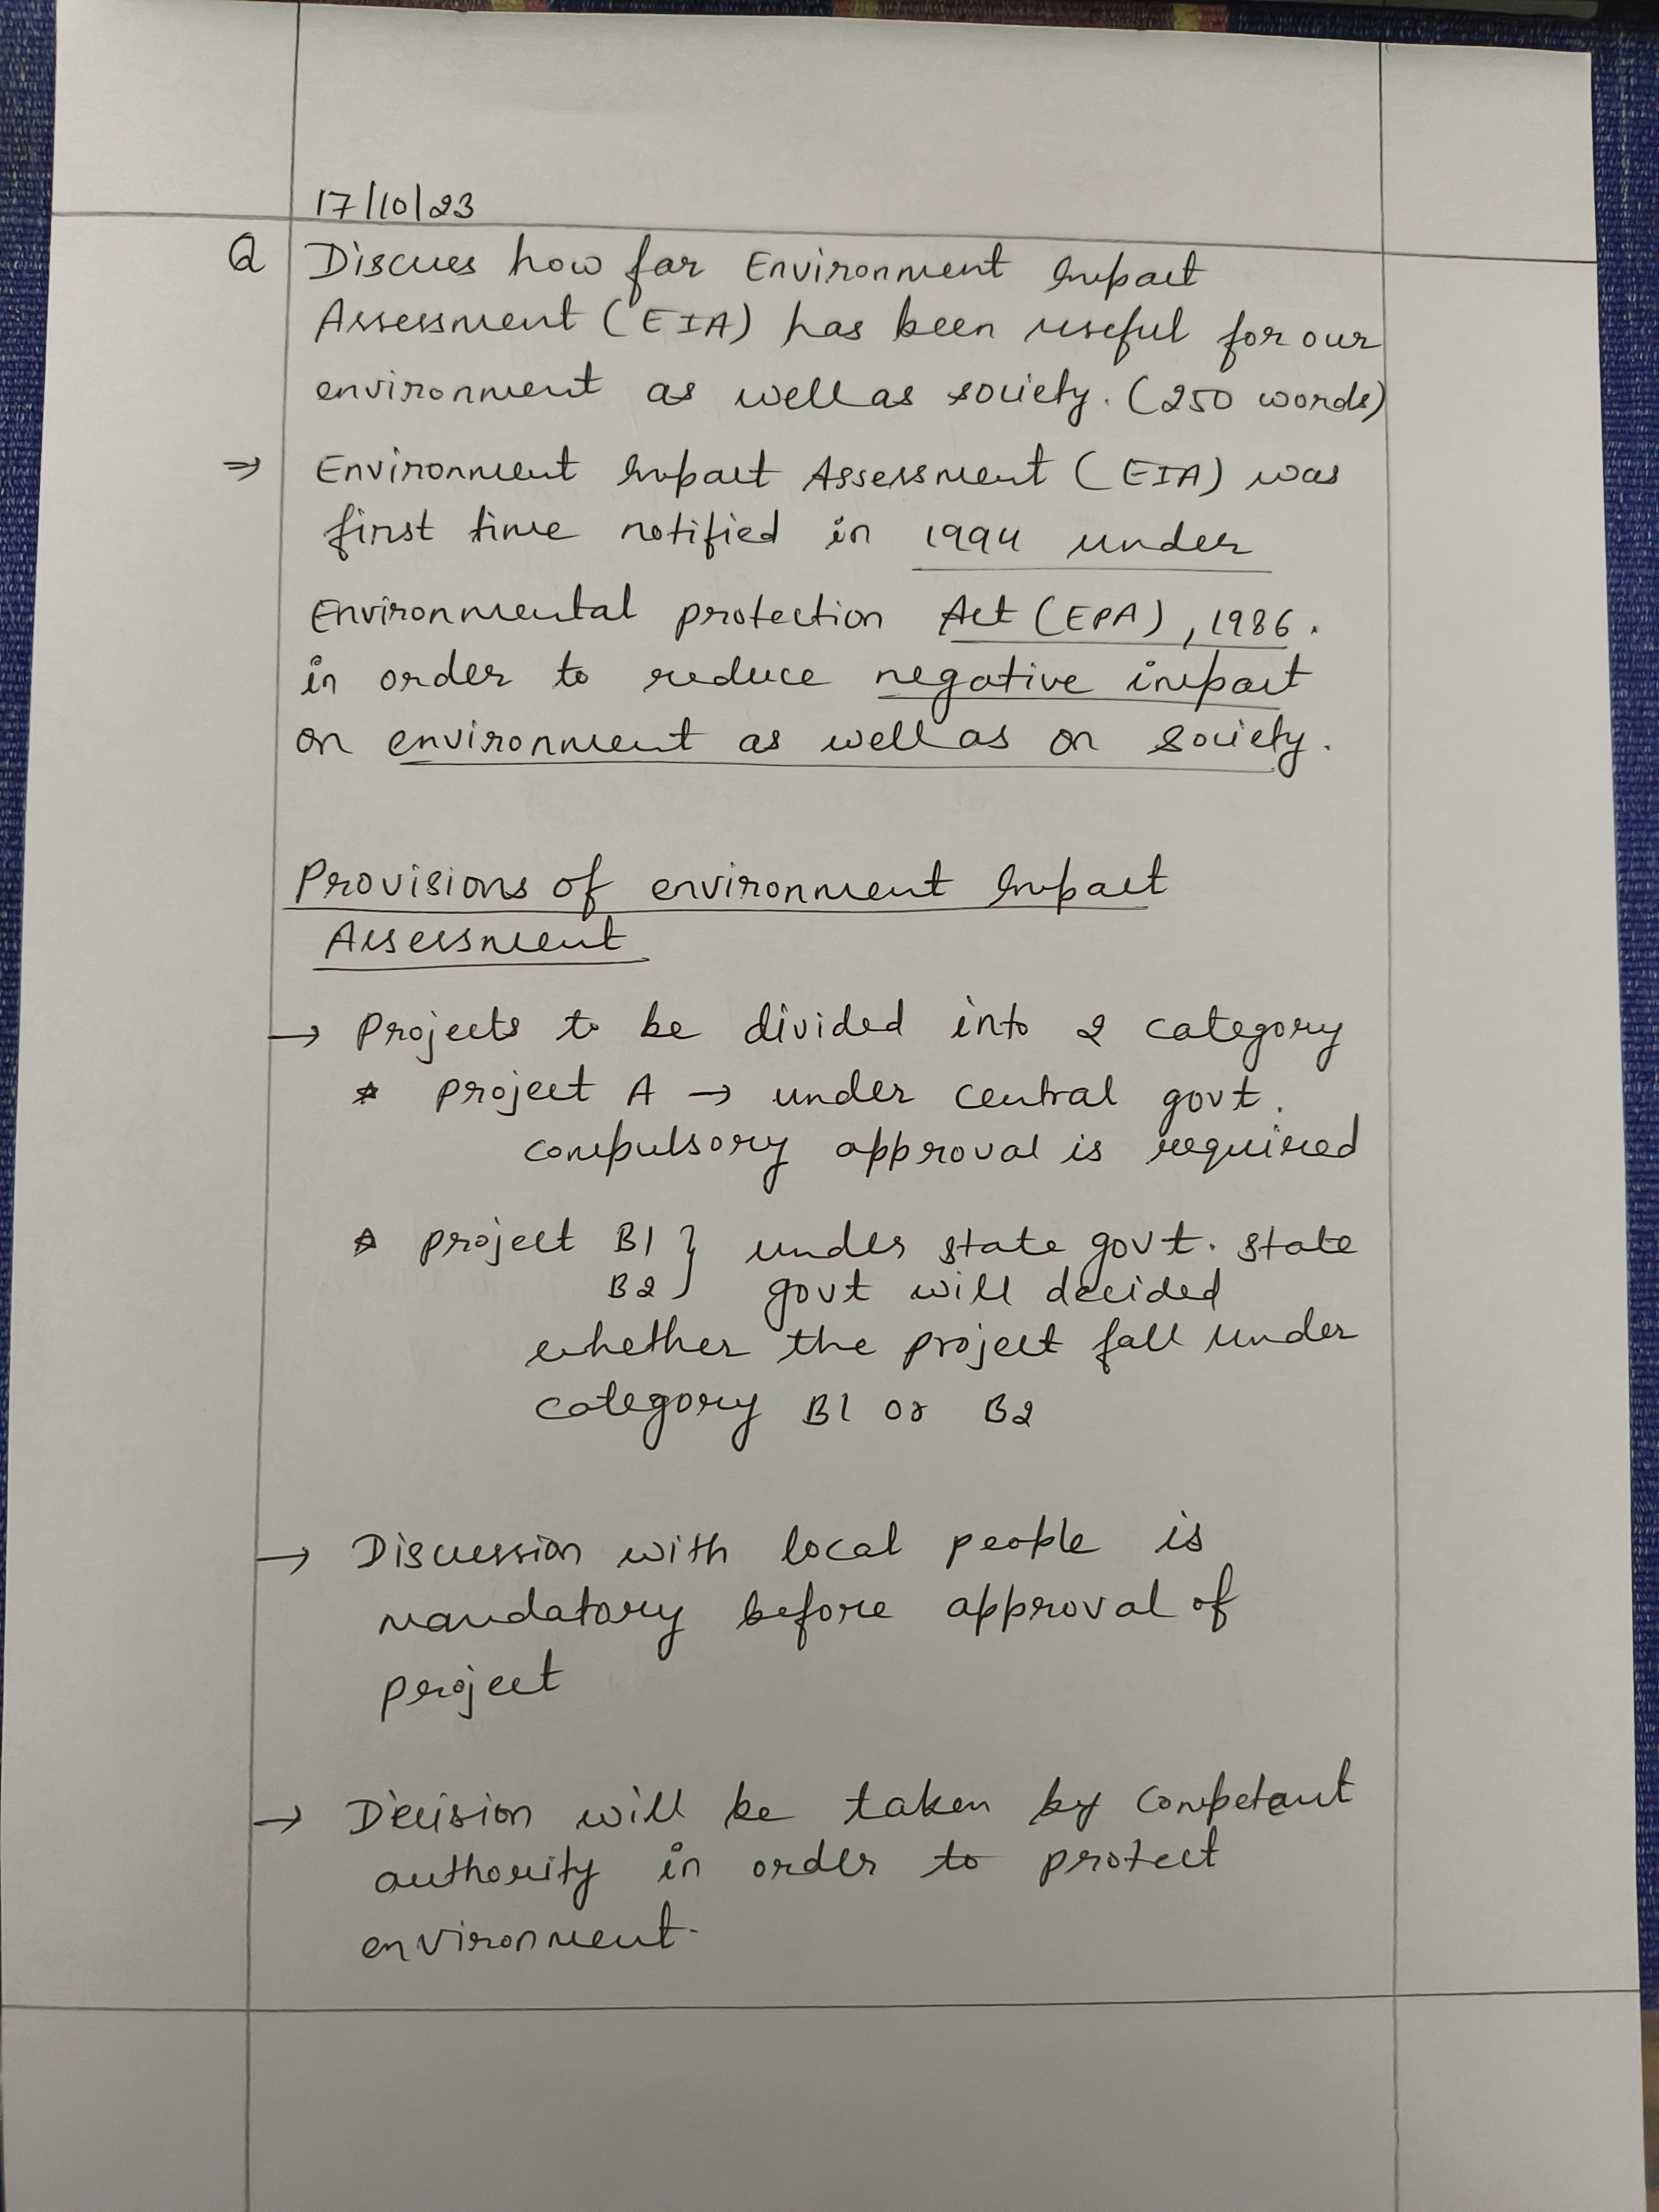 17/10/23
Q Discuss how far Environment Impact
Assessment (EIA) has been useful for our
environment as well as society. (250 words)
⇒ Environment Impact Assessment (EIA) was
first time notified in 1994 under
Environmental protection Act (EPA), 1986.
in order to reduce negative impact
on environment as well as on society.
Provisions of environment Impact
Assessment
→ Projects to be divided into 2 category
* project A → under central govt.
compulsory approval is required
* project B1 } under state govt. state
B2 } govt will decided
whether the project fall under
category B1 or B2
→ Discussion with local people is
mandatory before approval of
project
→ Decision will be taken by competant
authority in order to protect
environment.